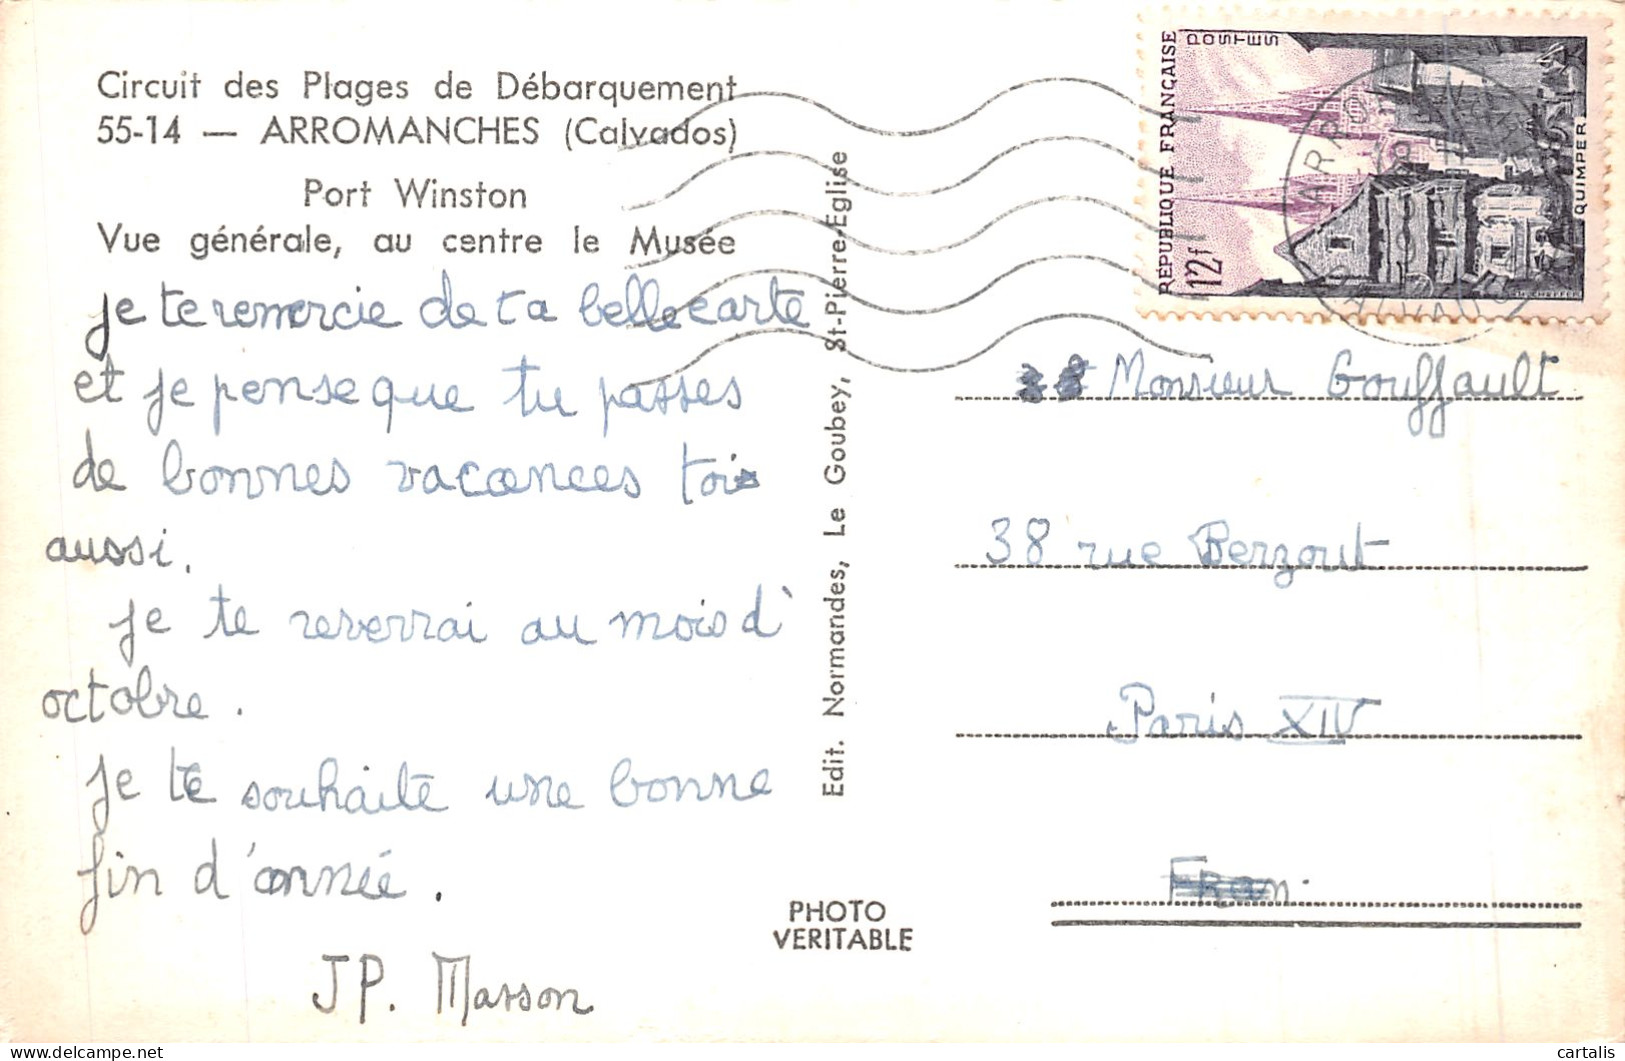 Circuit des Plages de Débarquement
55-14 — ARROMANCHES (Calvados)
Port Winston
Vue générale, au centre le Musée
je te remercie de ta belle carte
et je pense que tu passes
de bonnes vacances toi
aussi.
je te reverrai au mois d'
octobre.
je te souhaite une bonne
fin d'année.
JP. Masson
Edit. Normandes, Le Goubey, St-Pierre-Eglise
PHOTO
VERITABLE
RÉPUBLIQUE FRANÇAISE
POSTES
12f
QUIMPER
Monsieur Gouffault
38 rue Berzout
Paris XIV
cartalis